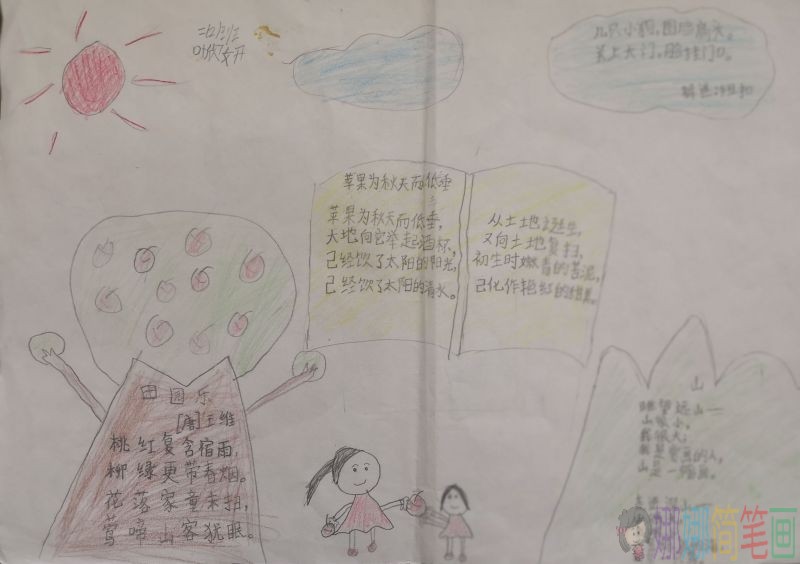 几只小狗,围脸扁头。
关上大门,脸挂门口。
苹果为秋天而低垂
苹果为秋天而低垂,
大地向它举起酒杯,
已经饮了太阳的阳光,
已经饮了太阳的清水。
从土地
又向土地复归,
初生时嫩青的苦泥,
已化作艳红的甜美。
田园乐
[唐]王维
桃红复含宿雨,
柳绿更带春烟。
花落家童未扫,
莺啼山客犹眠。
山
眺望远山一
山很小,
我很大;
山是一幅画。
娜娜简笔画